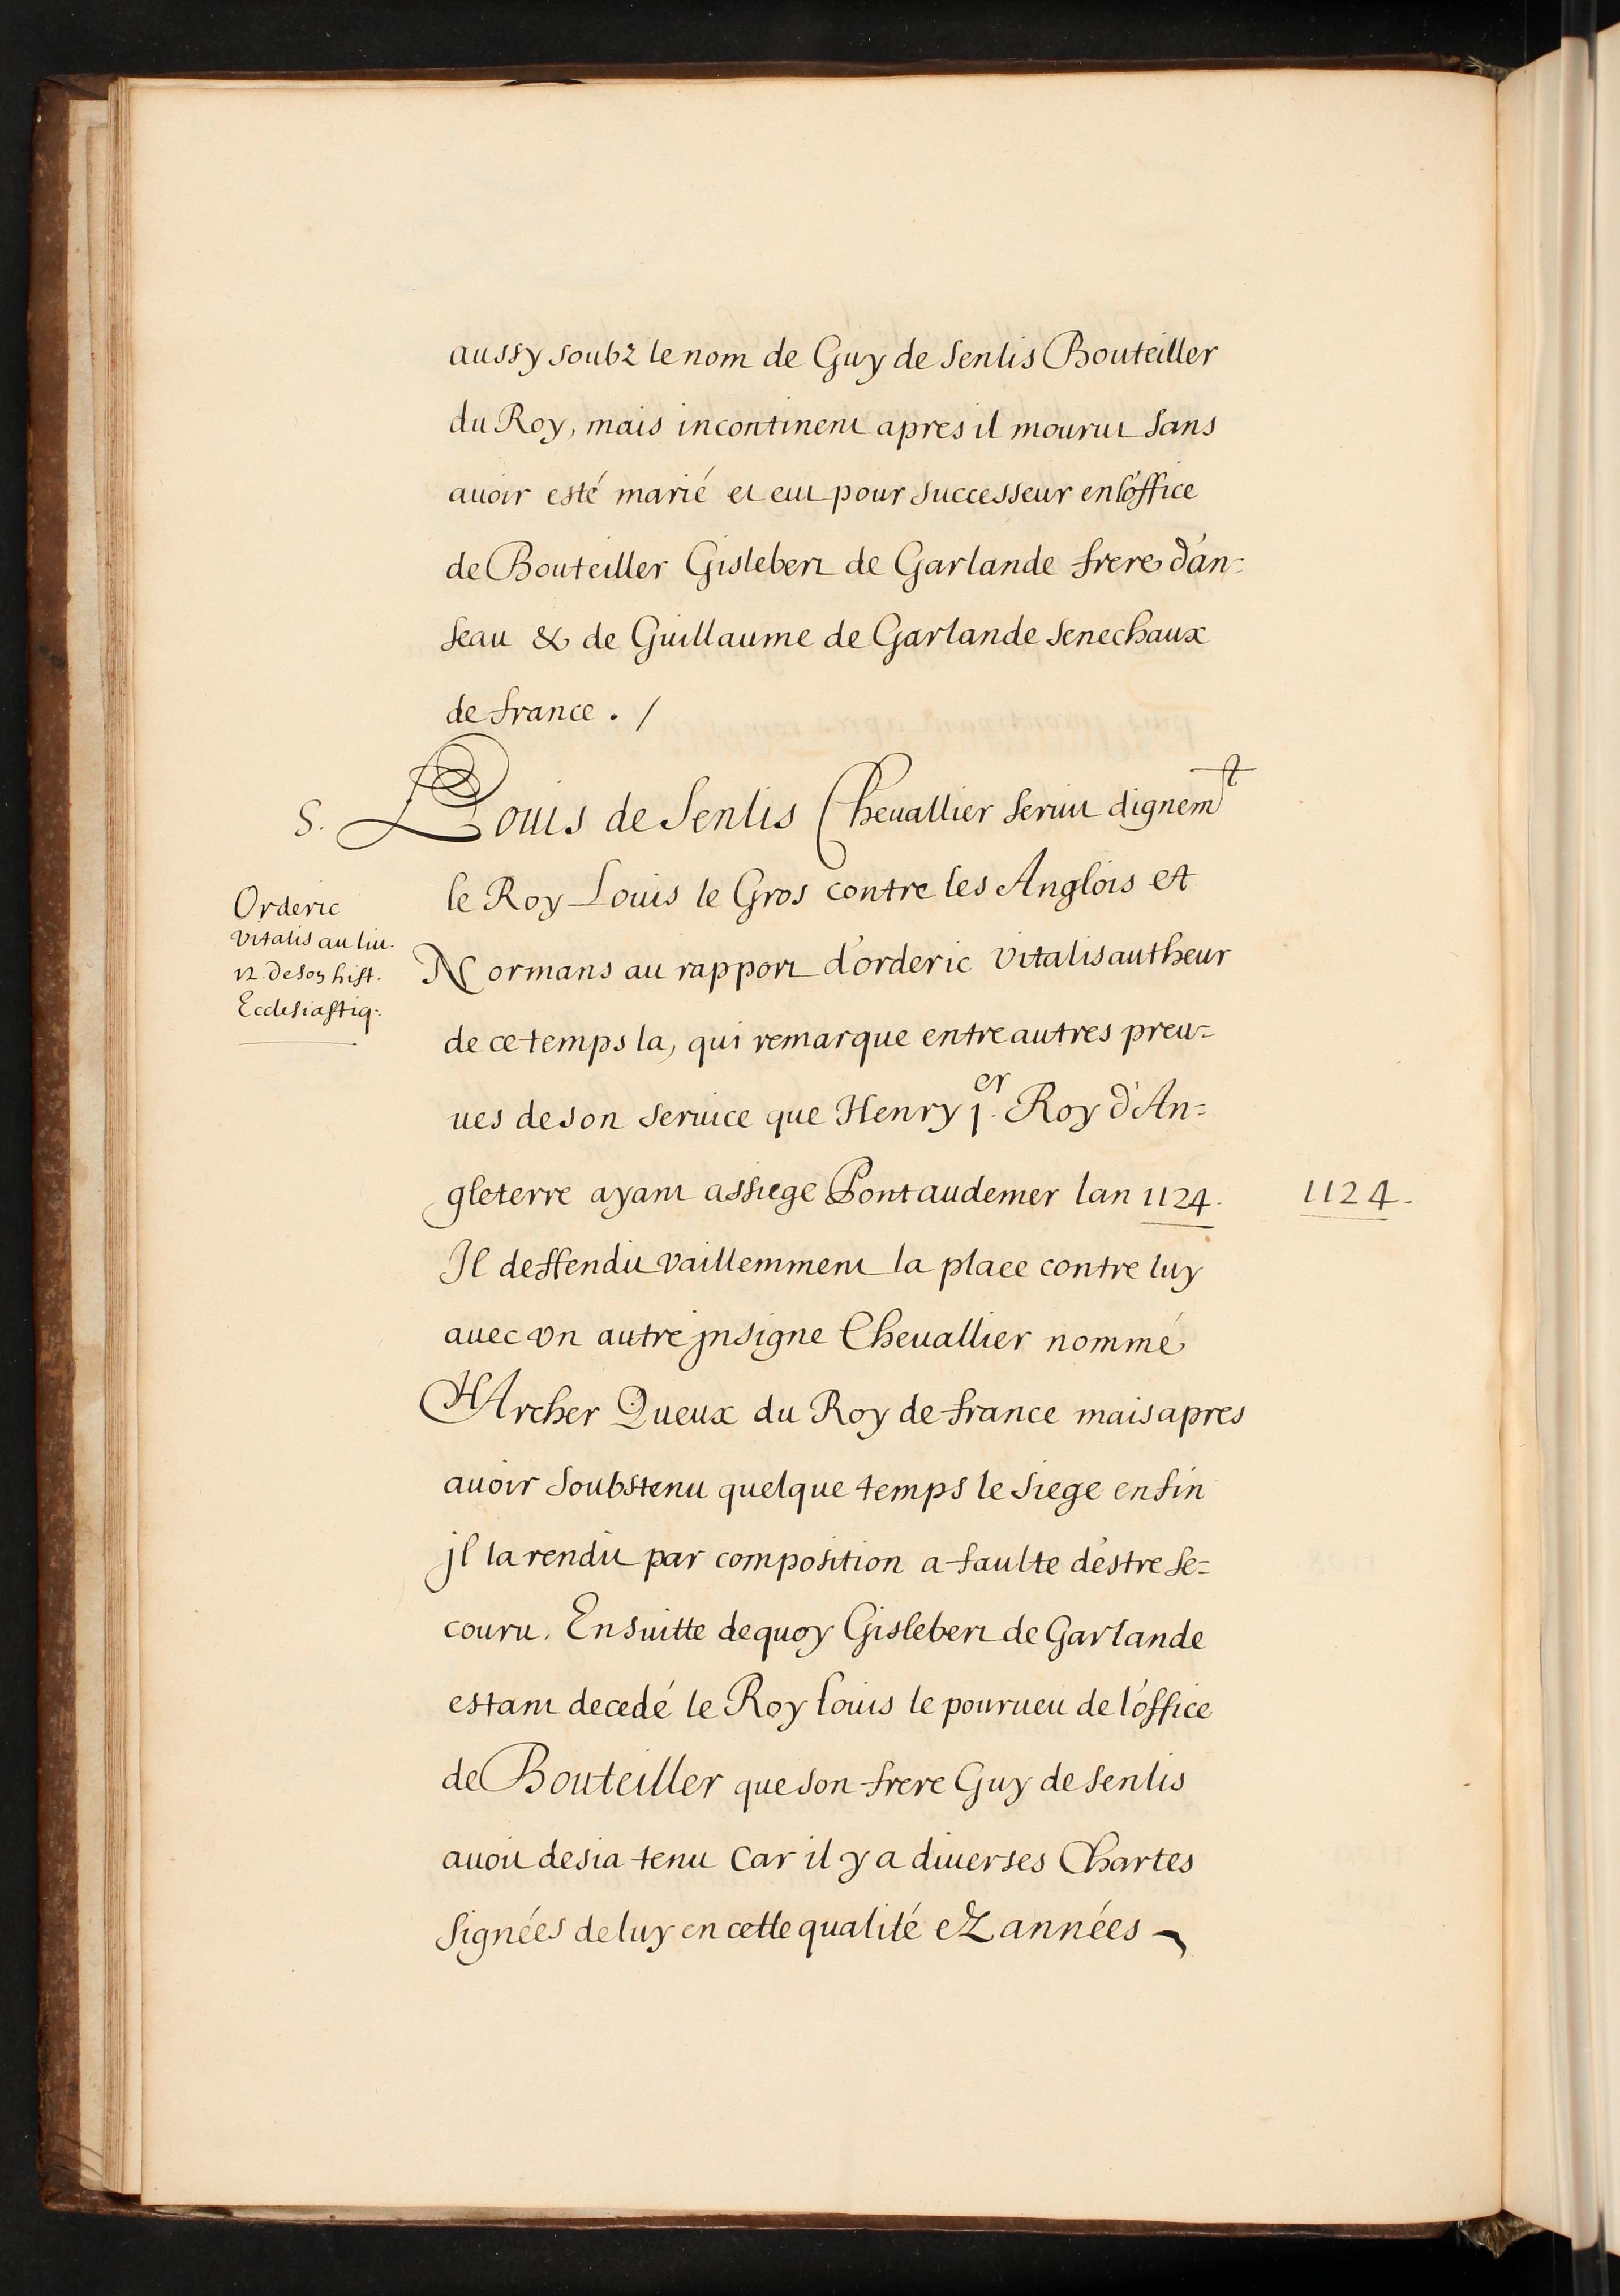 aussy soubz le nom de Guy de Senlis Bouteiller
du Roy, mais incontinent apres il mourut sans
auoir esté marié et eut pour successeur en l'office
de Bouteiller Gislebert de Garlande frere d'an=
seau & de Guillaume de Garlande Senechaux
de france . /
S. Louis de Senlis Cheuallier seruit dignemt
le Roy Louis le Gros contre les Anglois et
Normans au rapport d'orderic vitalis autheur
de ce temps la, qui remarque entre autres preu=
ues de son seruice que Henry j.er Roy d'An=
gleterre ayant assiege Pontaudemer lan 1124.
Il deffendit vaillemment la place contre luy
auec vn autre jnsigne Cheuallier nommé
HArcher Queux du Roy de france mais apres
auoir soubstenu quelque temps le siege enfin
jl la rendit par composition a faulte d'estre se=
couru. Ensuitte dequoy Gislebert de Garlande
estant decedé le Roy Louis le pourueu de l'office
de Bouteiller que son frere Guy de Senlis
auoit desia tenu car il y a diuerses Chartes
signées de luy en cette qualité ez années
Orderic
vitalis au liu.
12 de son hist.
Ecclesiastiq:
1124.